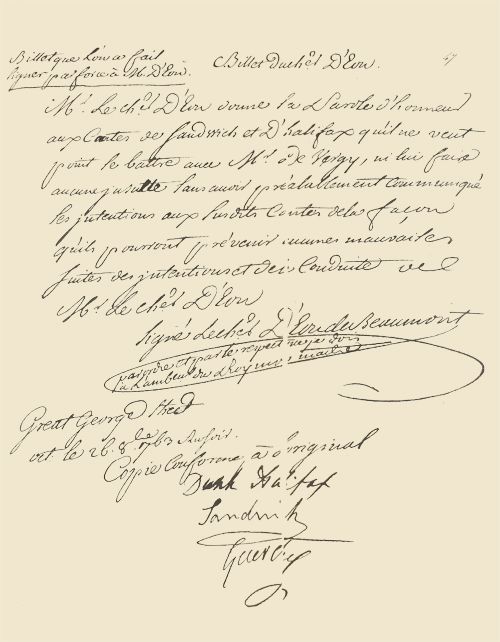 Billet que l'on a fait
signer par force à M. D'Eon.
Billet du chĕr D'Eon.
Mr. Le chĕr D'Eon donne sa Parole d'honneur
aux Comtes de Sandwich et D'halifax qu'il ne veut
point se battre avec Mr. de Vergy, ni lui faire
aucune insulte sans avoir préalablement communiqué
ses intentions aux susdits Comtes de la façon
qu'ils pourront prévenir aucunes mauvaises
suites des intentions et de la Conduite de
Mr. Le chĕr D'Eon
signé Le chĕr D'Eon de Beaumont
par ordre et par le respect que je dois
à L'ambassadeur du Roy mon maitre
Great George Street
oct. le 26. 8bre 1763 au soir.
Copie Conforme à o'original
Dunk Halifax
Sandwich
Guerchy